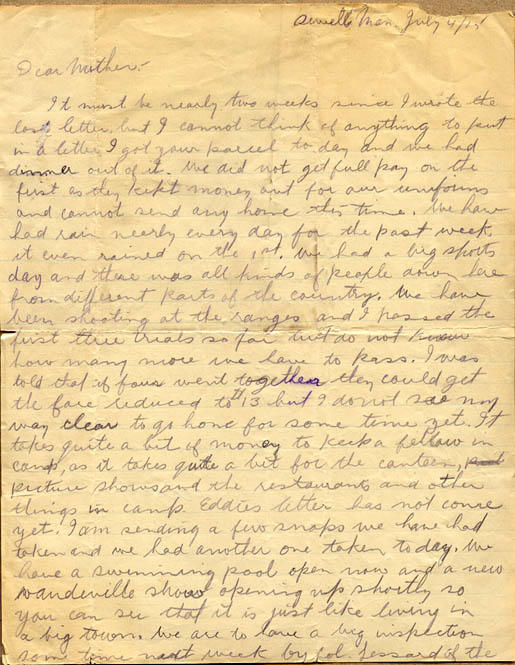 Sewell Man. July 4/15
Dear Mother:-
It must be nearly two weeks since I wrote the
last letter, but I cannot think of anything to put
in a letter I got your parcel to day and we had
dinner out of it. We did not get full pay on the
first as they kept money out for our uniforms
and cannot send any home this time. We have
had rain nearly every day for the past week
it even rained on the 1st. We had a big sports
day and there was all kinds of people down here
from different parts of the country. We have
been shooting at the ranges and I passed the
first three trials so far but do not know
how many more we have to pass. I was
told that if four went together they could get
the fare reduced to $13 but I do not see my
way clear to go home for some time yet. It
takes quite a bit of money to keep a fellow in
camp, as it takes quite a bit for the canteen,
picture shows and the restaurants and other
things in camp. Eddies letter has not come
yet. I am sending a few snaps we have had
taken and we had another one taken today. We
have a swimming pool open now and a new
vaudeville show opening up shortly so
you can see that it is just like living in
a big town. We are to have a big inspection
some time next week by Col. Lessard of the